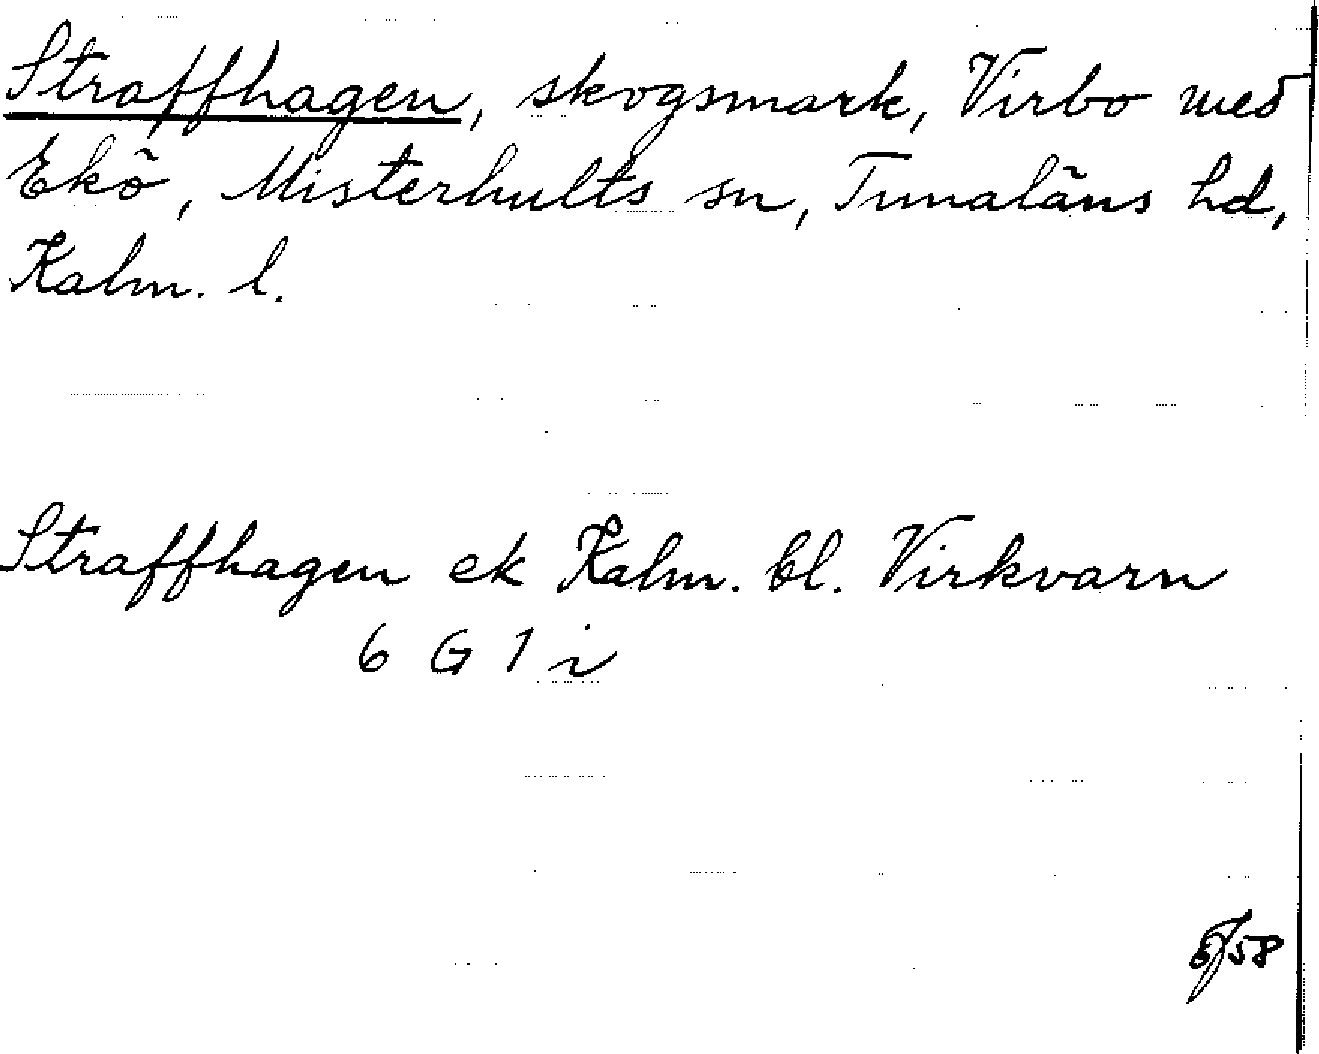 Straffhagen, skogsmark, Virbo med
Ekö, Misterhults sn, Tunaläns hd,
Kalm. l.
Straffhagen ek Kalm. bl. Virkvarn
6 G 1 i